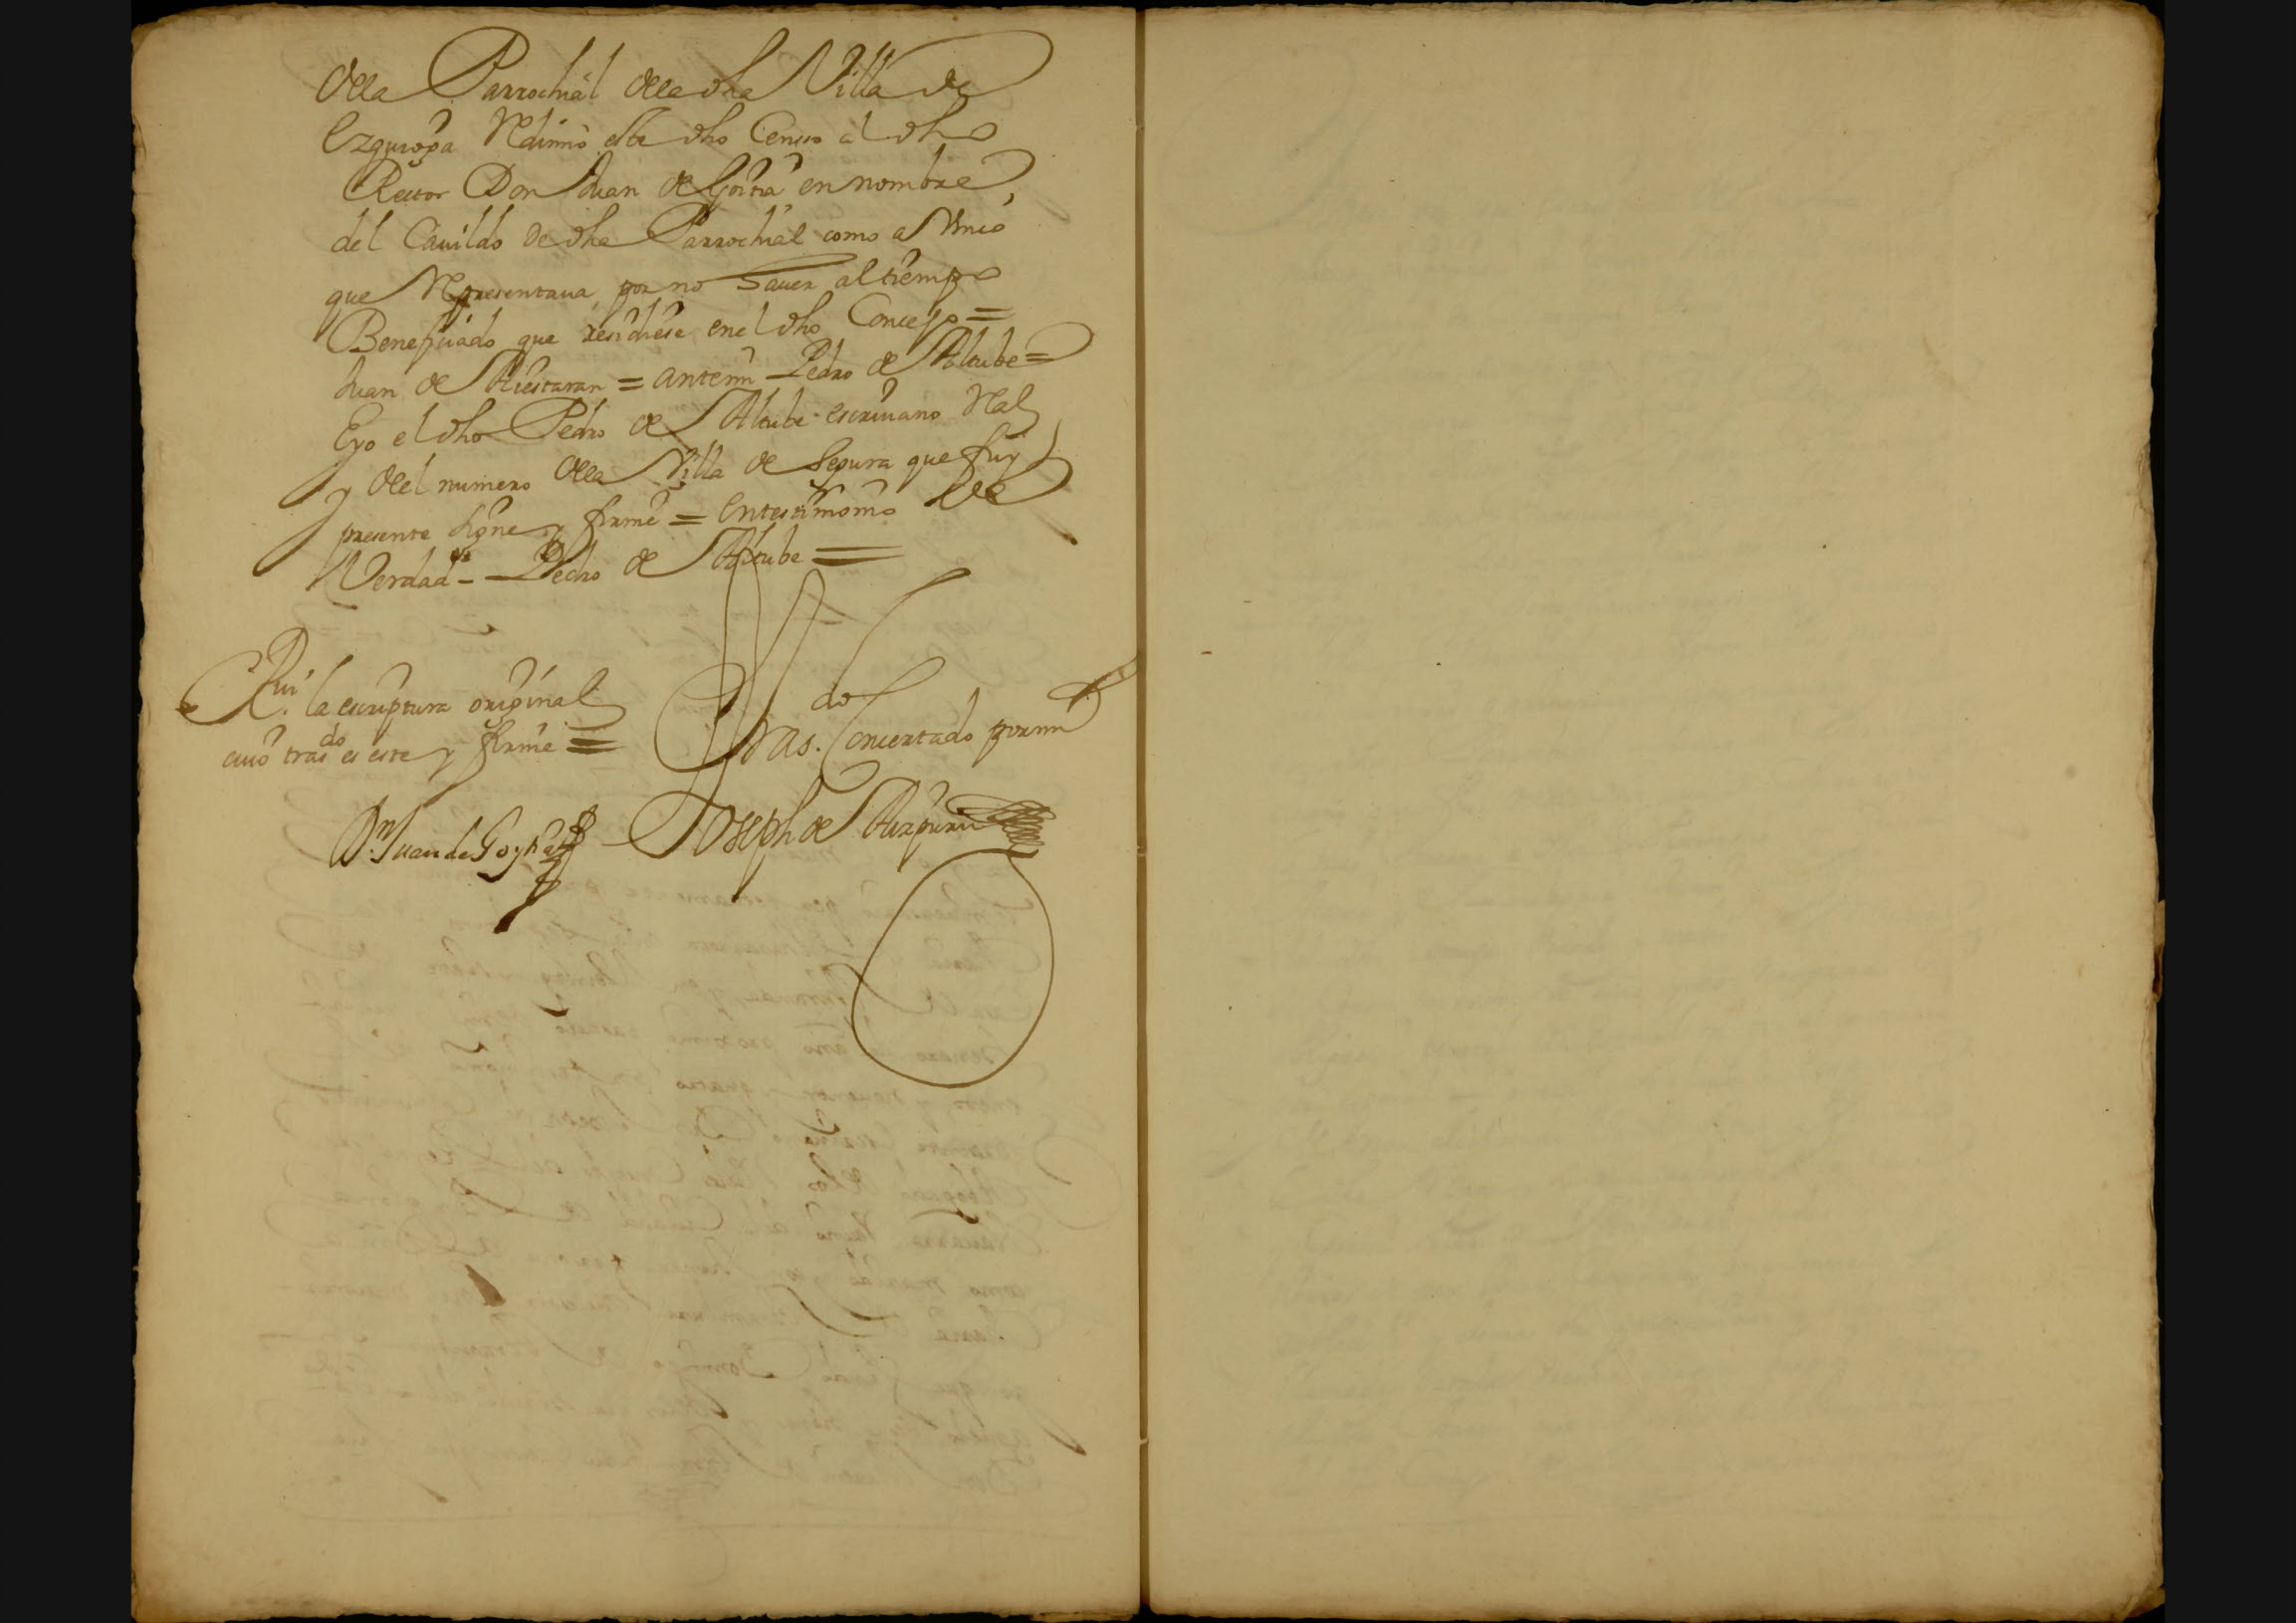 della Parrochial della dha Villa de
Ezquioga Redimio este dho Censso al dho
Rector Don Juan de Goitia en nombre
del Cavildo de dha Parrochial como a Unico
que Representava, por no haver al tiempo
Beneficiado que residiese en el dho Concejo =
Juan de Aiestaran = antemi Pedro de Altube =
Eyo el dho Pedro de Altube escrivano Real
y del numero della Villa de Segura que fuy
presente signe y firme = En testimonio de
Verdad - Pedro de Altube =
Rvi la escriptura original
cuio trasdo es este y firme =
Trasdo Concertado por mi
Dn Juan de Goytia
Joseph de Aizpuru